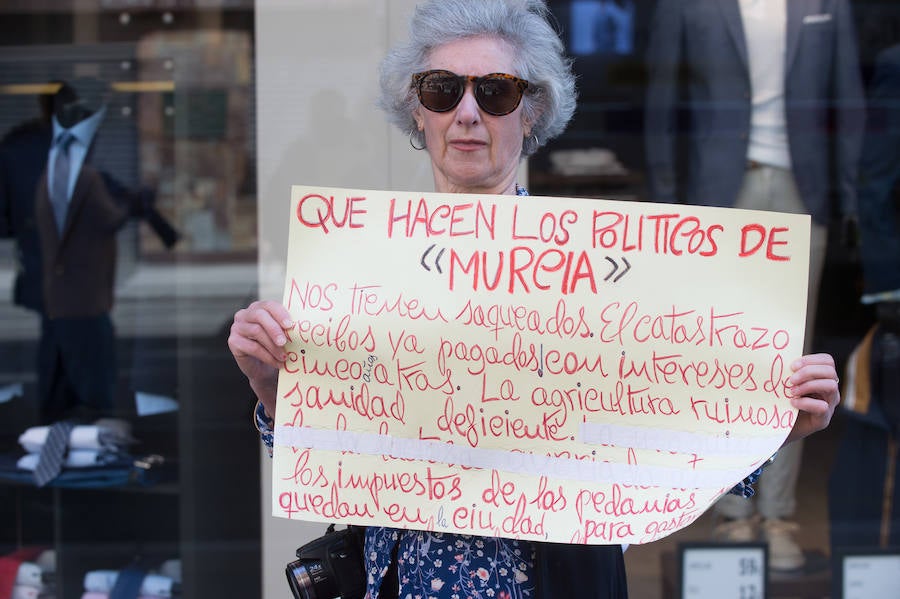 QUE HACEN LOS POLITICOS DE
«MURCIA»
NOS tienen saqueados. El catastrazo
recibos ya pagados, con intereses de
cinco años atras. La agricultura ruinosa
sanidad deficiente.
los impuestos de las pedanias
quedan en la ciudad, para gastar
24x